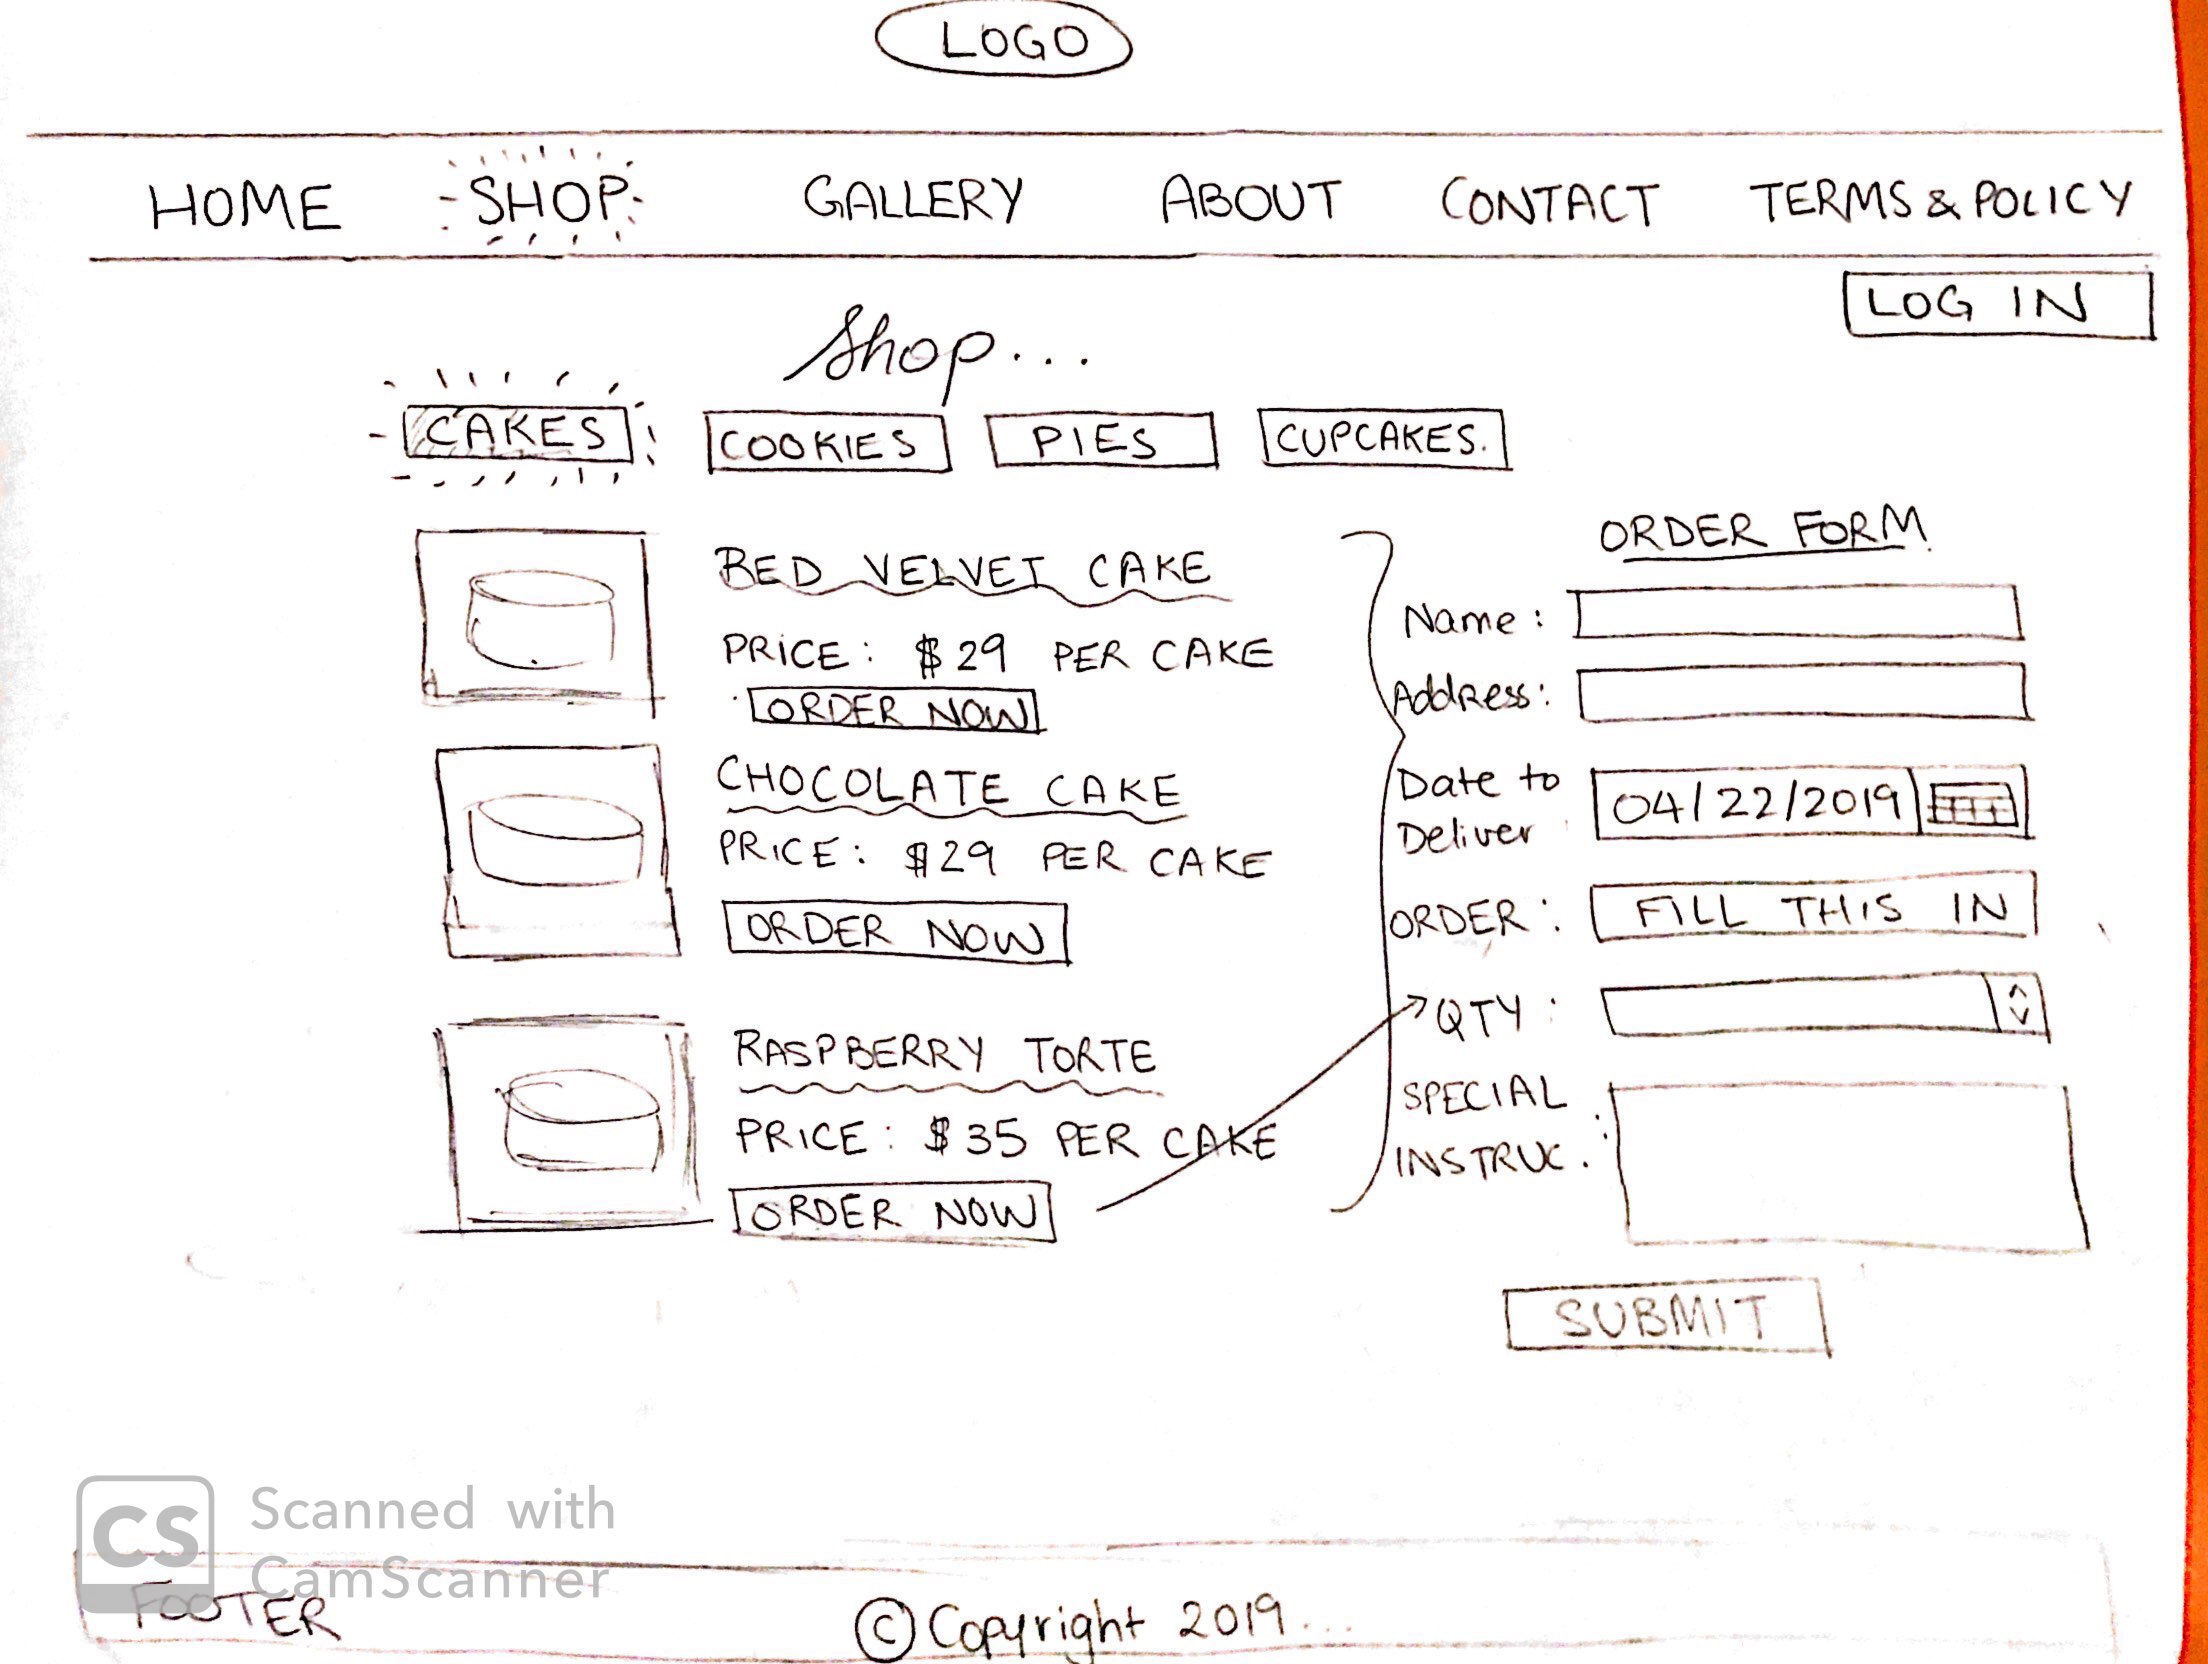 LOGO
HOME SHOP GALLERY ABOUT CONTACT TERMS & POLICY
LOG IN
Shop...
CAKES COOKIES PIES CUPCAKES.
BED VELVET CAKE
PRICE: $29 PER CAKE
ORDER NOW
CHOCOLATE CAKE
PRICE: $29 PER CAKE
ORDER NOW
RASPBERRY TORTE
PRICE: $35 PER CAKE
ORDER NOW
ORDER FORM
Name:
Address:
Date to
Deliver
04/22/2019
ORDER: FILL THIS IN
QTY:
SPECIAL
INSTRUC. :
SUBMIT
CS
Scanned with
CamScanner
FOOTER
© Copyright 2019...